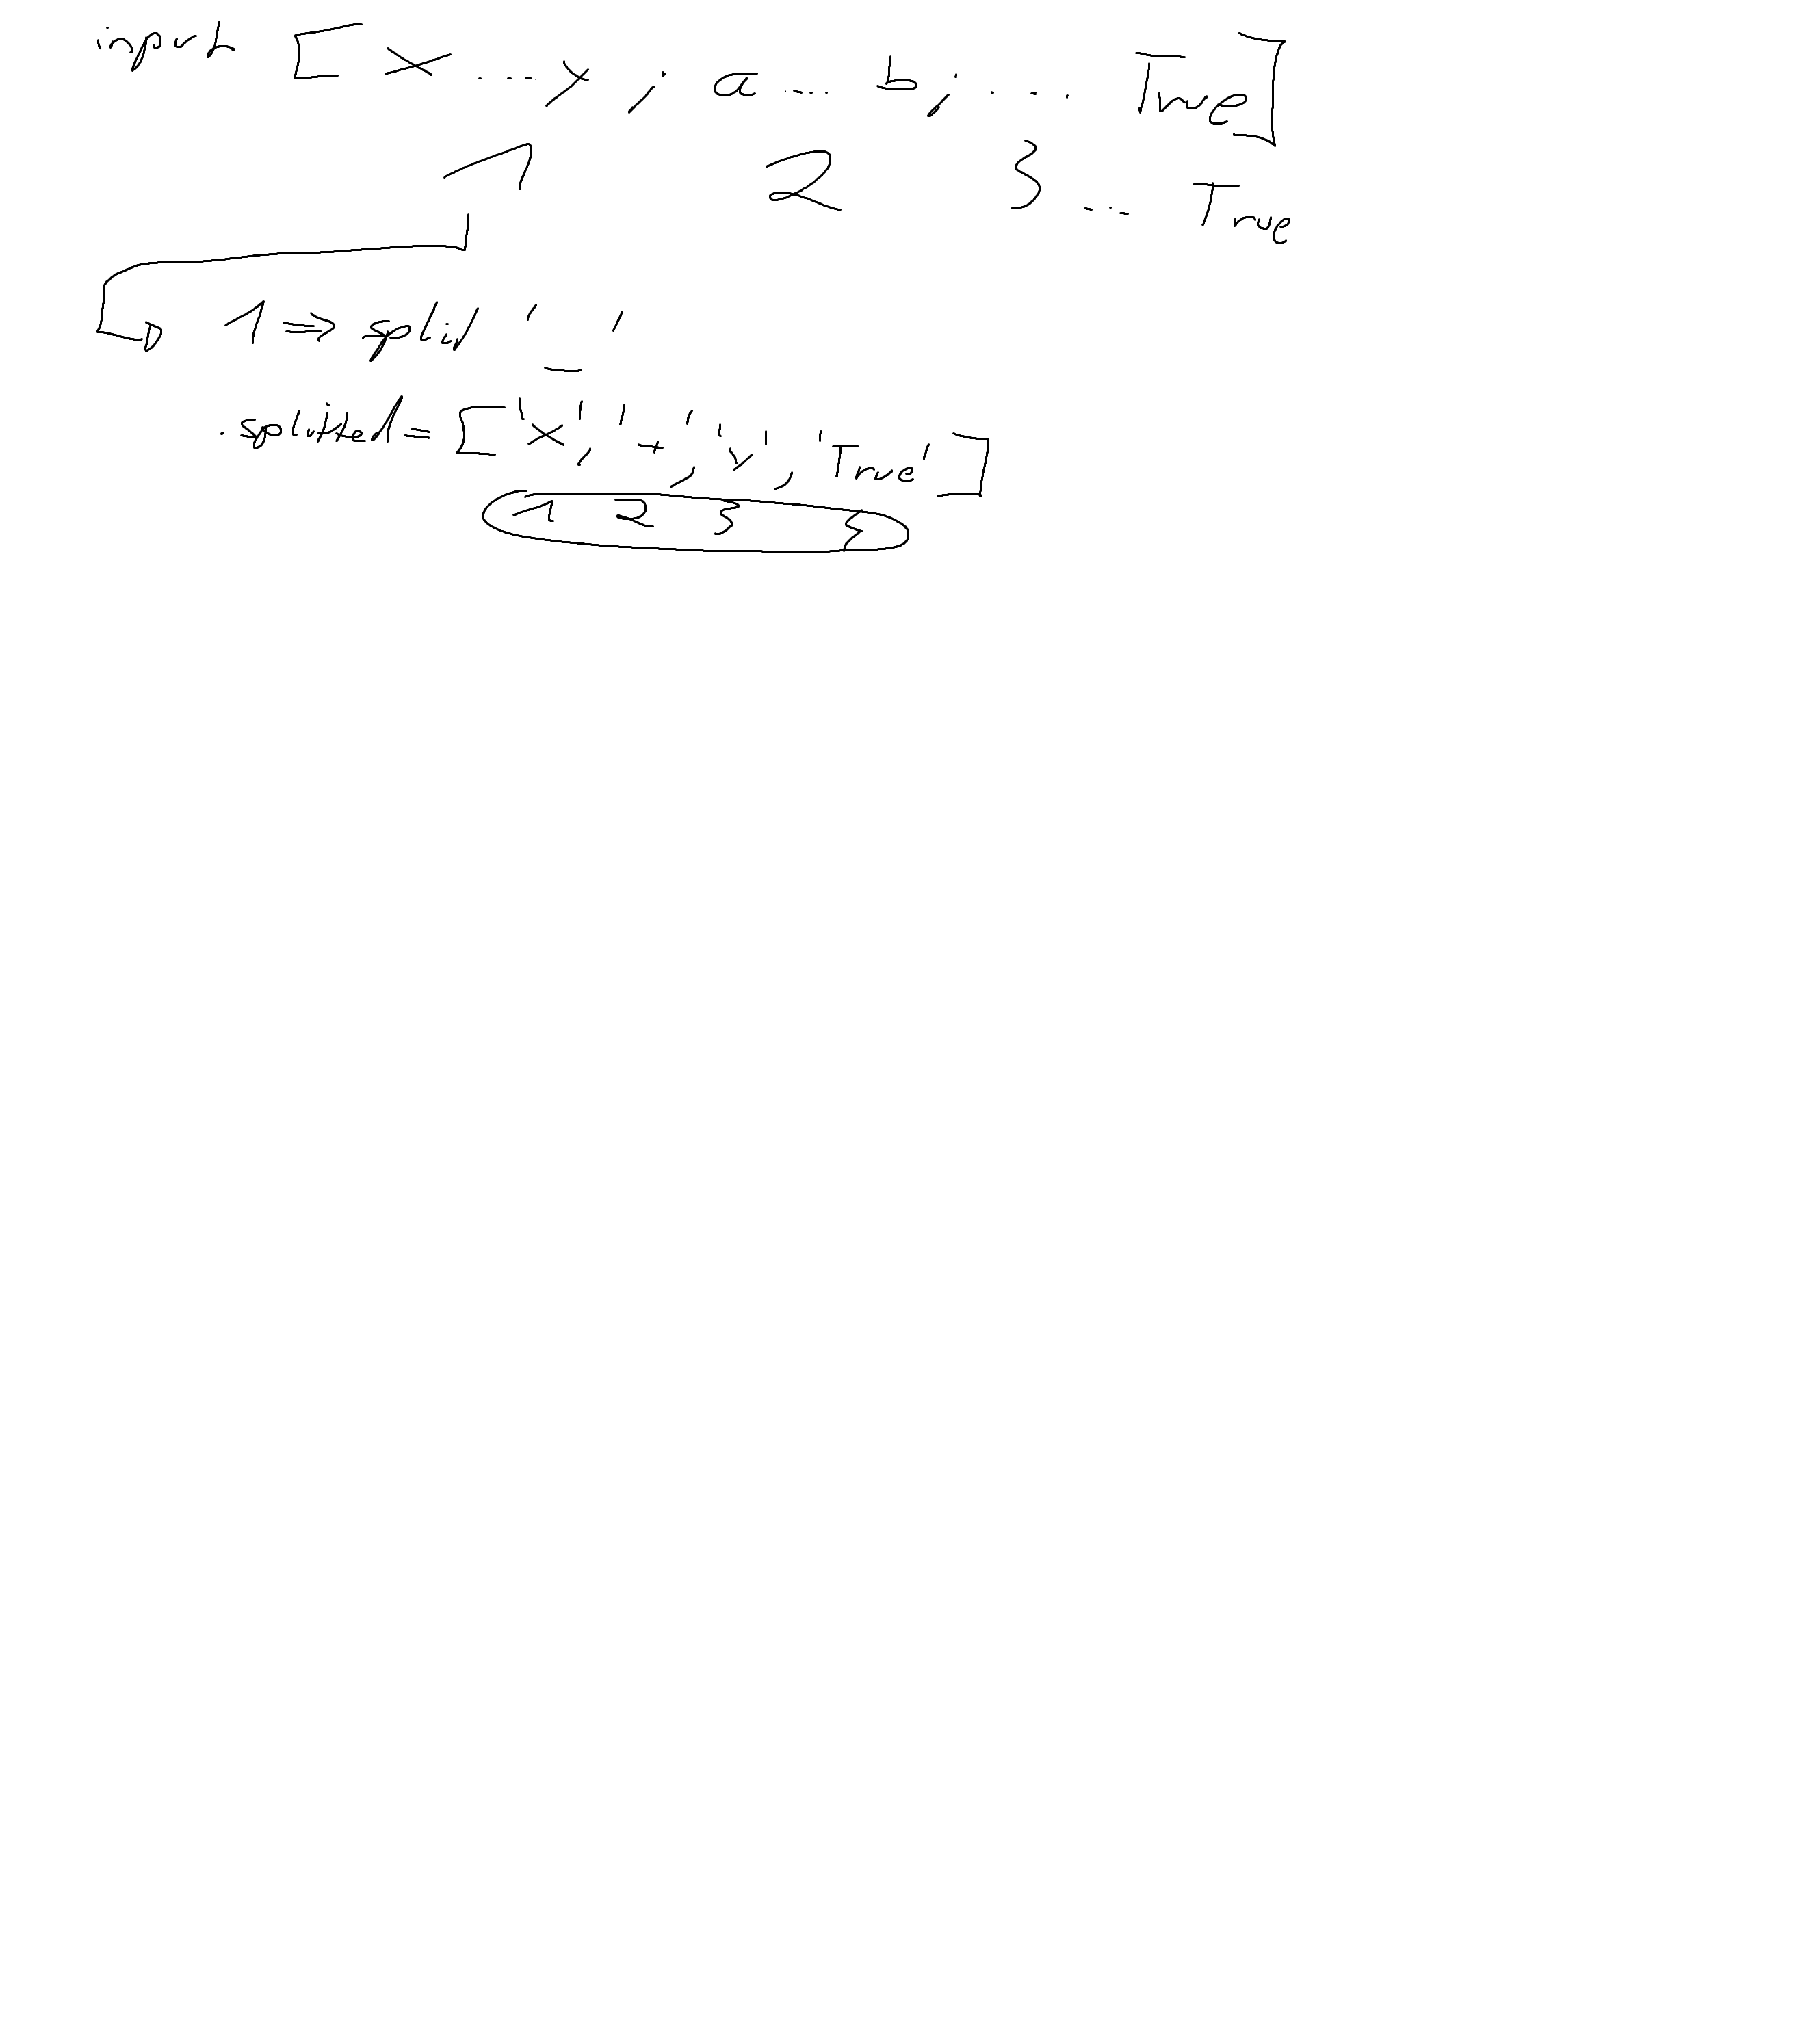 input [ x ... y ; a ... b ; ... True ]
1 2 3 ... True
1 => split '_'
. splitted = [ 'x', '+', 'y', 'True' ]
1 2 3